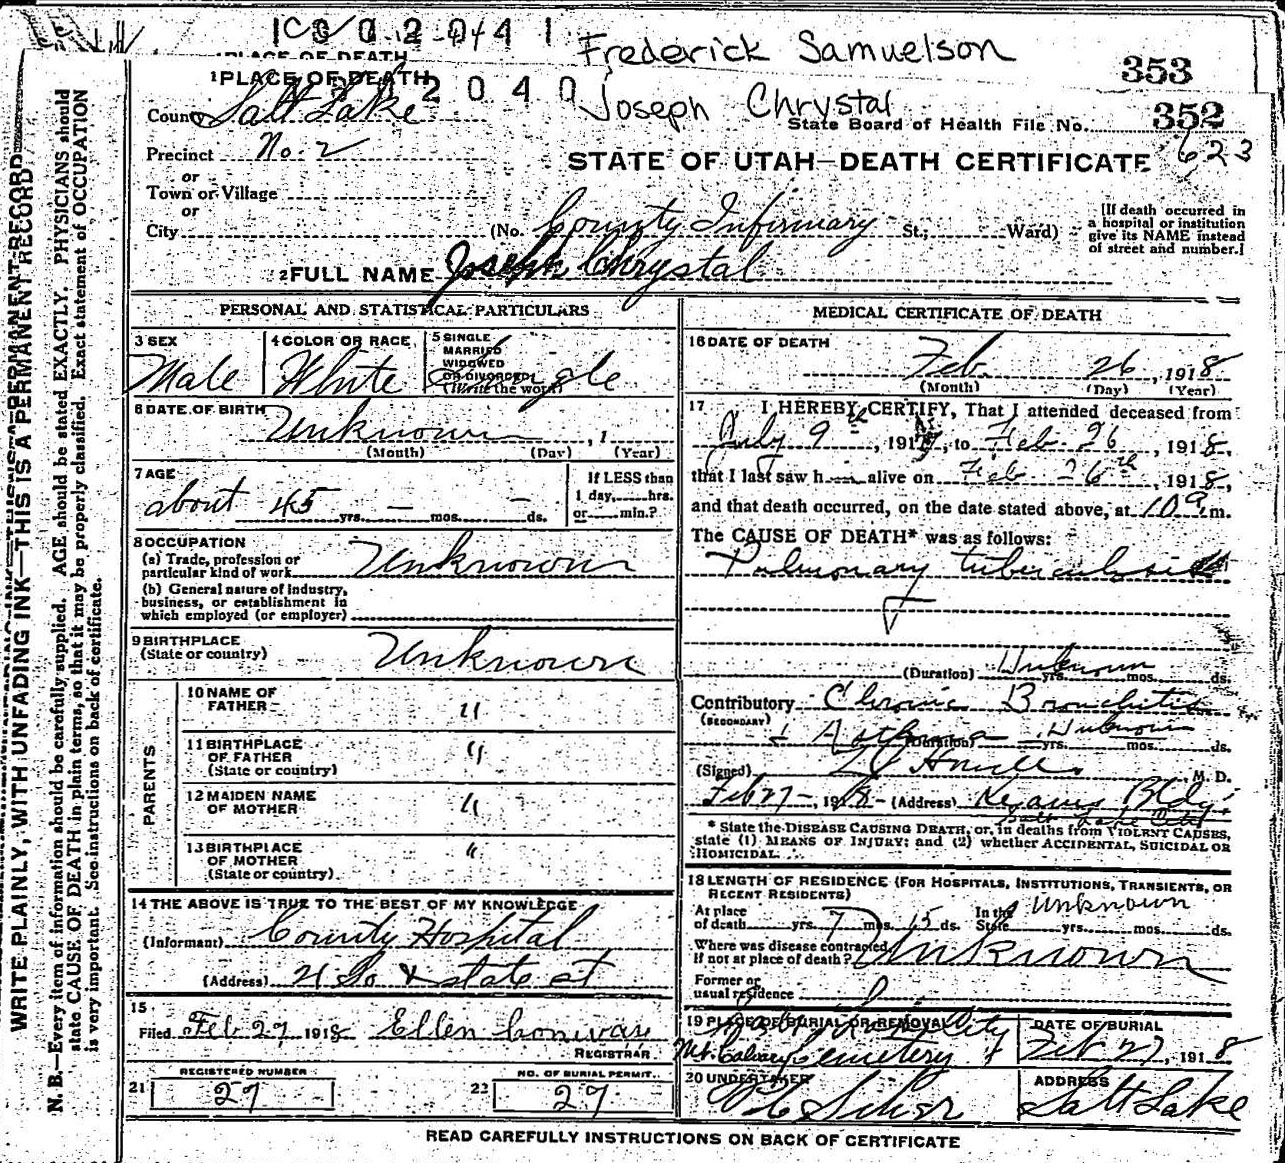 Frederick Samuelson
353
1 PLACE OF DEATH
2 0 4 0
Joseph Chrystal
352
County Salt Lake
State Board of Health File No.
Precinct No. 2
STATE OF UTAH—DEATH CERTIFICATE
623
or
Town or Village
or
City
(No. County Infirmary St.; Ward)
[If death occurred in
a hospital or institution
give its NAME instead
of street and number.]
2 FULL NAME Joseph Chrystal
PERSONAL AND STATISTICAL PARTICULARS
3 SEX
Male
4 COLOR OR RACE
White
5 SINGLE
MARRIED
WIDOWED
OR DIVORCED
(Write the word)
Single
6 DATE OF BIRTH
Unknown , 1
(Month) (Day) (Year)
7 AGE
about 45 yrs. — mos. — ds.
If LESS than
1 day, hrs.
or min.?
8 OCCUPATION
(a) Trade, profession or
particular kind of work Unknown
(b) General nature of industry,
business, or establishment in
which employed (or employer)
9 BIRTHPLACE
(State or country) Unknown
PARENTS
10 NAME OF
FATHER "
11 BIRTHPLACE
OF FATHER
(State or country) "
12 MAIDEN NAME
OF MOTHER "
13 BIRTHPLACE
OF MOTHER
(State or country) "
14 THE ABOVE IS TRUE TO THE BEST OF MY KNOWLEDGE
(Informant) County Hospital
(Address) 21 So & state st
15
Filed Feb 27 1918 Ellen
REGISTRAR
REGISTERED NUMBER
21 27
NO. OF BURIAL PERMIT
22 27
MEDICAL CERTIFICATE OF DEATH
16 DATE OF DEATH
Feb. 26, 1918
(Month) (Day) (Year)
17 I HEREBY CERTIFY, That I attended deceased from
July 9th, 1917, to Feb. 26, 1918,
that I last saw h alive on Feb 26th, 1918,
and that death occurred, on the date stated above, at 10 a m.
The CAUSE OF DEATH* was as follows:
Pulmonary tuberculosis
(Duration) Unknown yrs. mos. ds.
Contributory Chronic Bronchitis
(SECONDARY)
+ Asthma (Duration) Unknown yrs. mos. ds.
(Signed) M. D.
Feb 27 – 1918 – (Address) Kearns Bldg
Salt Lake City
* State the DISEASE CAUSING DEATH, or, in deaths from VIOLENT CAUSES,
state (1) MEANS OF INJURY; and (2) whether ACCIDENTAL, SUICIDAL OR
HOMICIDAL.
18 LENGTH OF RESIDENCE (FOR HOSPITALS, INSTITUTIONS, TRANSIENTS, OR
RECENT RESIDENTS)
At place
of death yrs. 7 mos. 15 ds.
In the
State Unknown yrs. mos. ds.
Where was disease contracted,
If not at place of death? Unknown
Former or
usual residence
19 PLACE OF BURIAL OR REMOVAL
City
Mt. Calvary Cemetery
DATE OF BURIAL
Feb 27, 1918
20 UNDERTAKER
ADDRESS
Salt Lake
READ CAREFULLY INSTRUCTIONS ON BACK OF CERTIFICATE
WRITE PLAINLY, WITH UNFADING INK—THIS IS A PERMANENT RECORD
N. B.—Every item of information should be carefully supplied. AGE should be stated EXACTLY. PHYSICIANS should
state CAUSE OF DEATH in plain terms, so that it may be properly classified. Exact statement of OCCUPATION
is very important. See instructions on back of certificate.